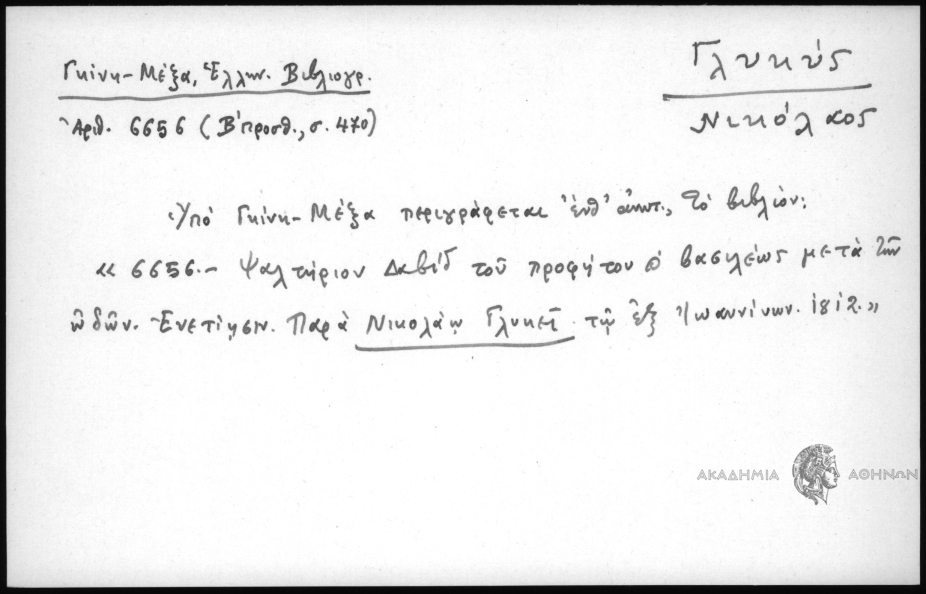 Γκίνη-Μέξα, Ἑλλην. Βιβλιογρ.
Ἀριθ. 6656 (Β' προσθ., σ. 470)
Γλυκύς
Νικόλαος
Ὑπό Γκίνη-Μέξα περιγράφεται ἐνθ' ἀνωτ., τό βιβλίον:
« 6656.- Ψαλτήριον Δαβίδ τοῦ προφήτου & βασιλέως μετὰ τῶν
ὠδῶν. Ἐνετίησιν. Παρὰ Νικολάῳ Γλυκεῖ τῷ ἐξ Ἰωαννίνων. 1812.»
ΑΚΑΔΗΜΙΑ ΑΘΗΝΩΝ